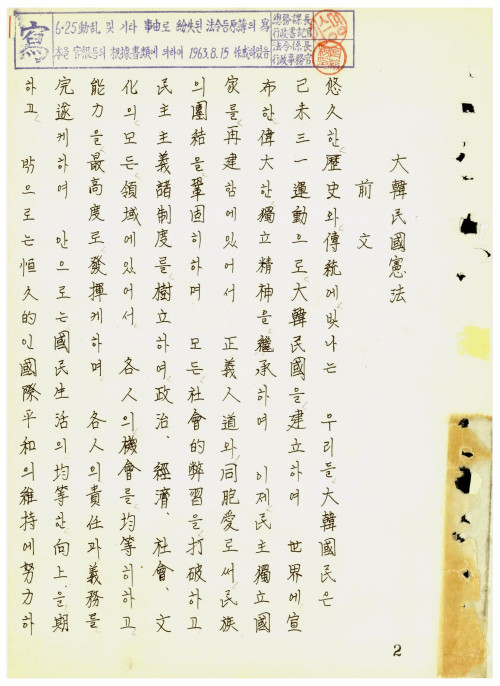 寫
6·25動乱 및 기타 事由로 紛失된 法令등原簿의 寫
本을 官報등의 根據書類에 의하여 1963.8.15 作成하였음
總務課長
行政書記官
法令係長
行政事務官
大韓民國憲法
前文
悠久한 歷史와 傳統에 빛나는 우리들 大韓國民은
己未三一運動으로 大韓民國을 建立하여 世界에 宣
布한 偉大한 獨立精神을 繼承하여 이제 民主獨立國
家를 再建함에 있어서 正義人道와 同胞愛로써 民族
의 團結을 鞏固히 하며 모든 社會的 弊習을 打破하고
民主主義諸制度를 樹立하여 政治、經濟、社會、文
化의 모든 領域에 있어서 各人의 機會를 均等히 하고
能力을 最高度로 發揮케 하며 各人의 責任과 義務를
完遂케 하여 안으로는 國民生活의 均等한 向上을 期
하고 밖으로는 恒久的인 國際平和의 維持에 努力하
2